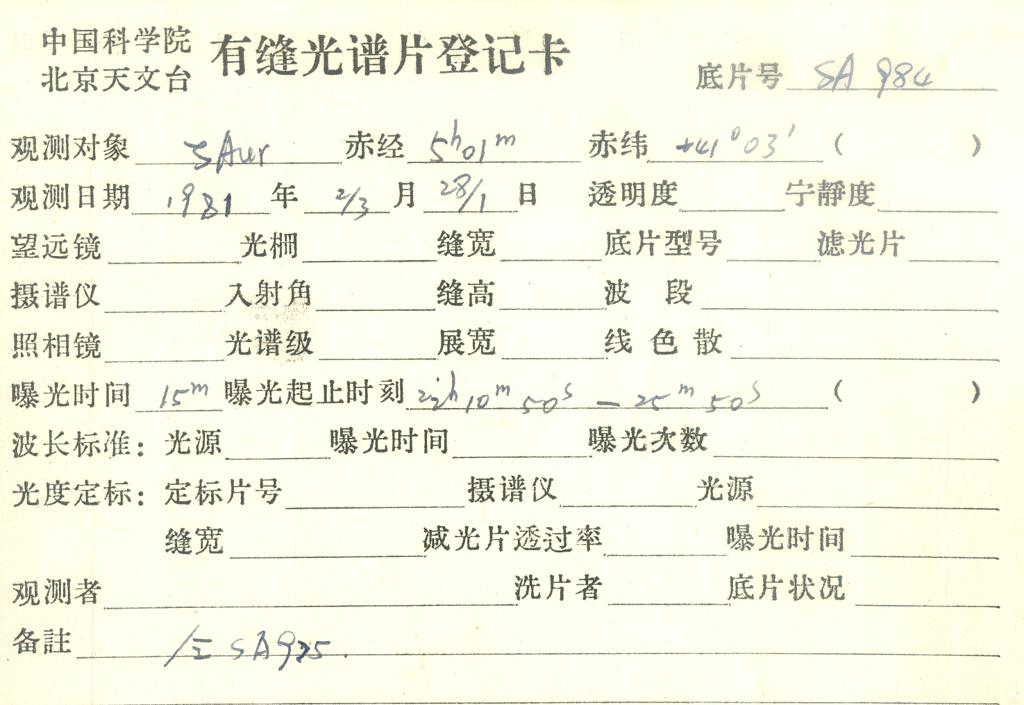 中国科学院
北京天文台
有缝光谱片登记卡
底片号 SA 984
观测对象 ζAur 赤经 5h01m 赤纬 +41°03′ ( )
观测日期 1981 年 2/3 月 28/1 日 透明度 宁静度
望远镜 光栅 缝宽 底片型号 滤光片
摄谱仪 入射角 缝高 波 段
照相镜 光谱级 展宽 线 色 散
曝光时间 15m 曝光起止时刻 22h10m50s — 25m50s ( )
波长标准: 光源 曝光时间 曝光次数
光度定标: 定标片号 摄谱仪 光源
缝宽 减光片透过率 曝光时间
观测者 洗片者 底片状况
备註 SA975.